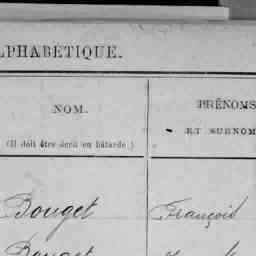 ALPHABÉTIQUE.
NOM.
PRÉNOMS
ET SURNOM
(Il doit être écrit en bâtarde.)
Bouget François
Bouget